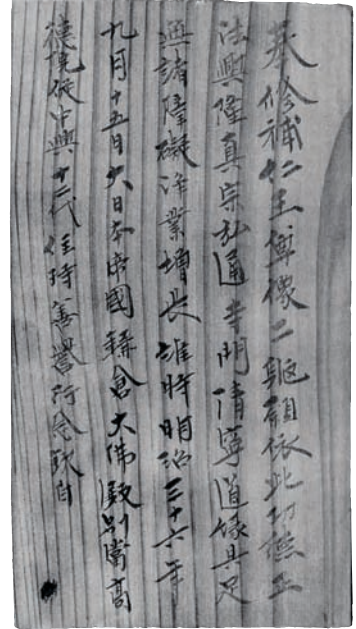 恭修補仁王尊像二軀願依此功德正
法興隆真宗弘通寺門清寧道緣具足
無諸障礙浄業增長維時明治三十六年
九月十五日大日本帝國鎌倉大佛殿別當高
德院従中興十二代住持善譽行念欽白